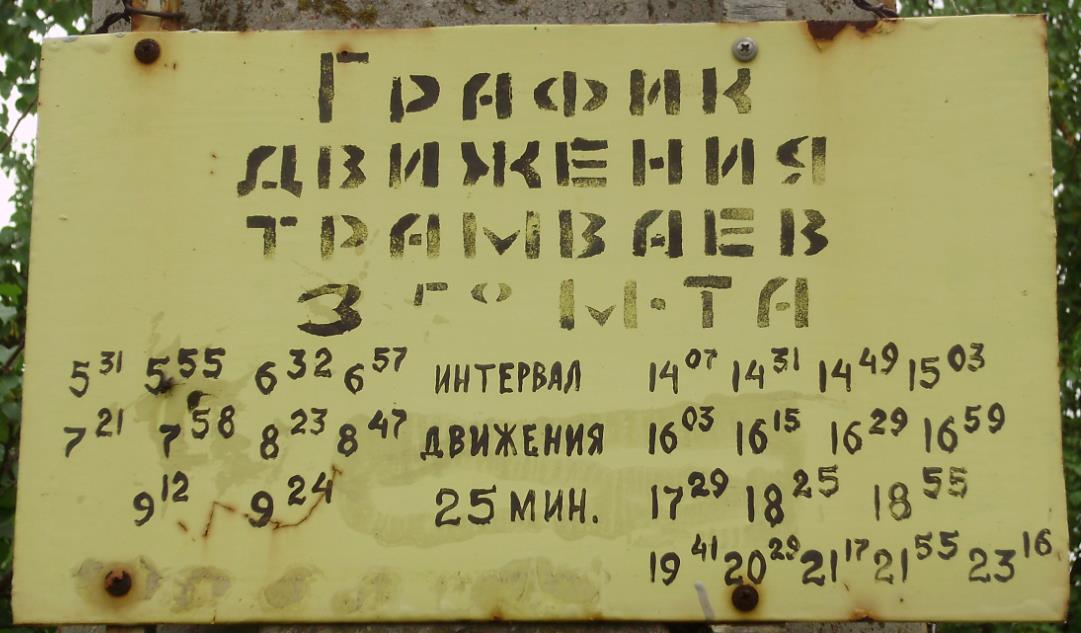 График
движения
трамваев
3го м-та
5³¹ 5⁵⁵ 6³² 6⁵⁷ интервал 14⁰⁷ 14³¹ 14⁴⁹ 15⁰³
7²¹ 7⁵⁸ 8²³ 8⁴⁷ движения 16⁰³ 16¹⁵ 16²⁹ 16⁵⁹
9¹² 9²⁴ 25 мин. 17²⁹ 18²⁵ 18⁵⁵
19⁴¹ 20²⁹ 21¹⁷ 21⁵⁵ 23¹⁶